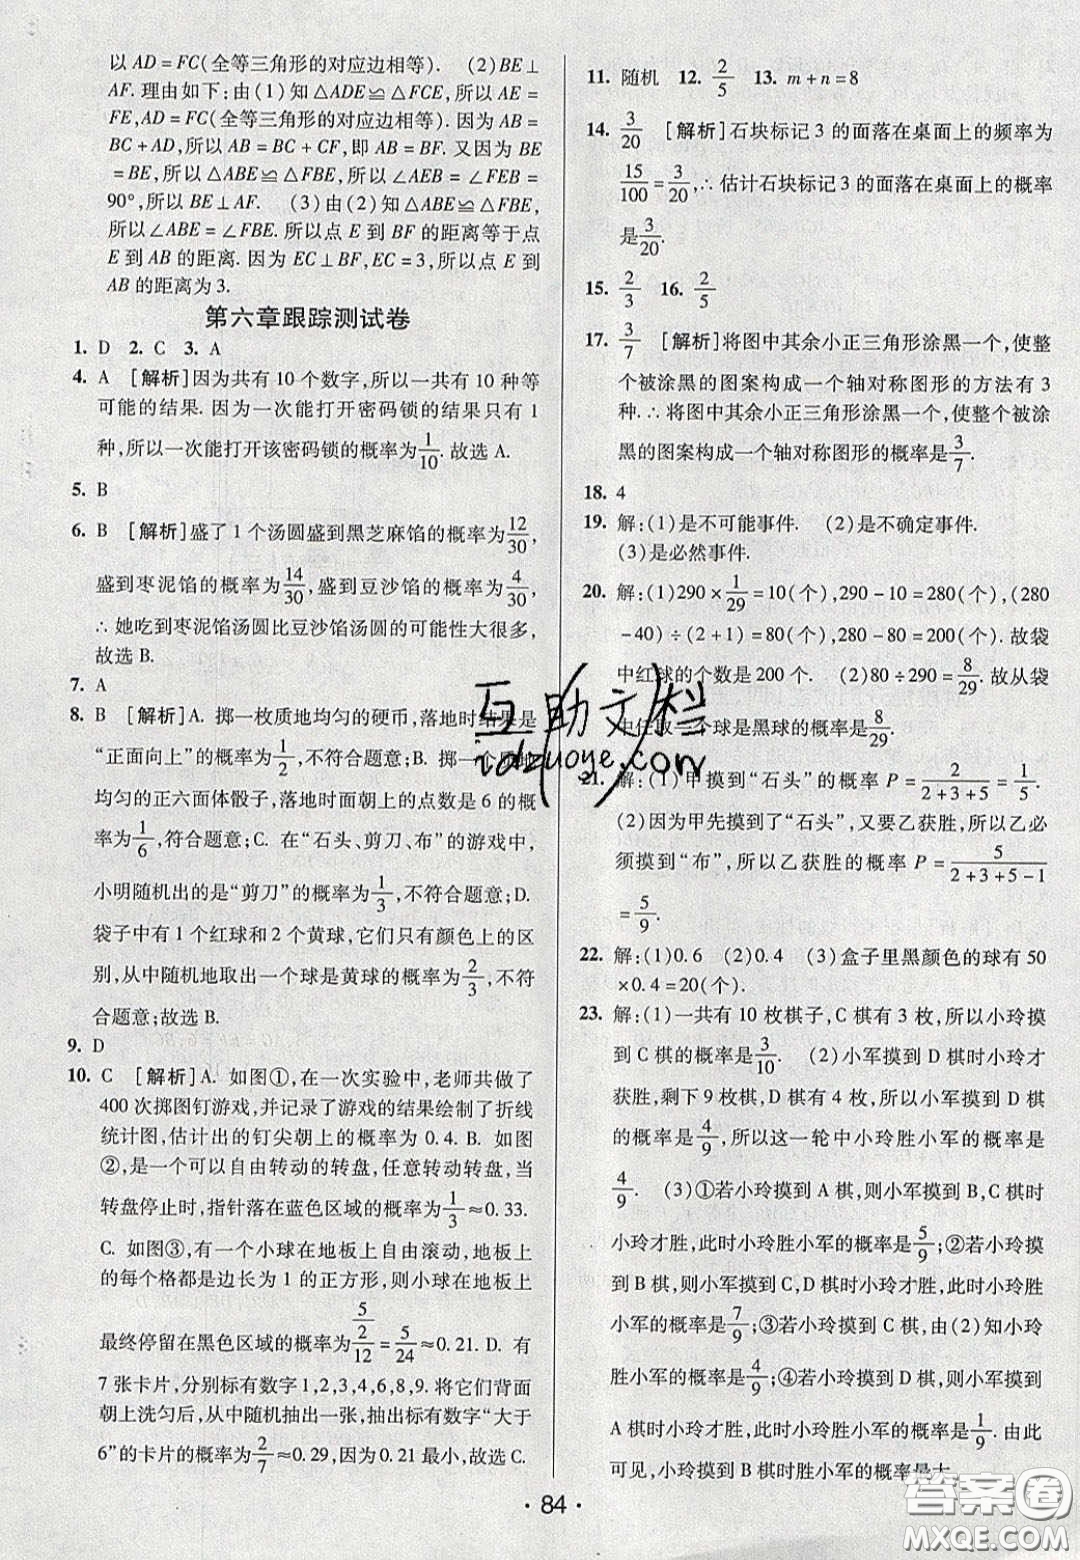 以 AD = FC(全等三角形的对应边相等). (2)BE⊥
AF. 理由如下:由(1)知△ADE≌△FCE,所以 AE =
FE,AD = FC(全等三角形的对应边相等). 因为 AB =
BC + AD,所以 AB = BC + CF,即 AB = BF. 又因为 BE
= BE,所以△ABE≌△FBE,所以∠AEB = ∠FEB =
90°,所以 BE⊥AF. (3)由(2)知△ABE≌△FBE,
所以∠ABE = ∠FBE. 所以点 E 到 BF 的距离等于点
E 到 AB 的距离. 因为 EC⊥BF,EC = 3,所以点 E 到
AB 的距离为 3.
第六章跟踪测试卷
1. D 2. C 3. A
4. A [解析]因为共有 10 个数字,所以一共有 10 种等
可能的结果. 因为一次能打开密码锁的结果只有 1
种,所以一次能打开该密码锁的概率为 1/10. 故选 A.
5. B
6. B [解析]盛了 1 个汤圆盛到黑芝麻馅的概率为 12/30,
盛到枣泥馅的概率为 14/30,盛到豆沙馅的概率为 4/30,
∴她吃到枣泥馅汤圆比豆沙馅汤圆的可能性大很多,
故选 B.
7. A
8. B [解析]A. 掷一枚质地均匀的硬币,落地时结果是
“正面向上”的概率为 1/2,不符合题意;B. 掷一个
均匀的正六面体骰子,落地时面朝上的点数是 6 的概
率为 1/6,符合题意;C. 在“石头、剪刀、布”的游戏中,
小明随机出的是“剪刀”的概率为 1/3,不符合题意;D.
袋子中有 1 个红球和 2 个黄球,它们只有颜色上的区
别,从中随机地取出一个球是黄球的概率为 2/3,不符
合题意;故选 B.
9. D
10. C [解析]A. 如图①,在一次实验中,老师共做了
400 次掷图钉游戏,并记录了游戏的结果绘制了折线
统计图,估计出的钉尖朝上的概率为 0.4. B. 如图
②,是一个可以自由转动的转盘,任意转动转盘,当
转盘停止时,指针落在蓝色区域的概率为 1/3 ≈0.33.
C. 如图③,有一个小球在地板上自由滚动,地板上
的每个格都是边长为 1 的正方形,则小球在地板上
最终停留在黑色区域的概率为 (5/2)/12 = 5/24 ≈0.21. D. 有
7 张卡片,分别标有数字 1,2,3,4,6,8,9. 将它们背面
朝上洗匀后,从中随机抽出一张,抽到标有数字“大于
6”的卡片的概率为 2/7 ≈0.29,因为 0.21 最小,故选 C.
11. 随机 12. 2/5 13. m + n = 8
14. 3/20 [解析]石块标记 3 的面落在桌面上的频率为
15/100 = 3/20,∴估计石块标记 3 的面落在桌面上的概率
是 3/20.
15. 2/3 16. 2/5
17. 3/7 [解析]将图中其余小正三角形涂黑一个,使整
个被涂黑的图案构成一个轴对称图形的方法有 3
种. ∴将图中其余小正三角形涂黑一个,使整个被涂
黑的图案构成一个轴对称图形的概率是 3/7.
18. 4
19. 解:(1)是不可能事件. (2)是不确定事件.
(3)是必然事件.
20. 解:(1)290 × 1/29 = 10(个),290 - 10 = 280(个),(280
- 40) ÷ (2 + 1) = 80(个),280 - 80 = 200(个). 故袋
中红球的个数是 200 个. (2)80 ÷ 290 = 8/29. 故从袋
中任取一个球是黑球的概率是 8/29.
21. 解:(1)甲摸到“石头”的概率 P = 2/(2+3+5) = 1/5.
(2)因为甲先摸到了“石头”,又要乙获胜,所以乙必
须摸到“布”,所以乙获胜的概率 P = 5/(2+3+5-1)
= 5/9.
22. 解:(1)0.6 (2)0.4 (3)盒子里黑颜色的球有 50
× 0.4 = 20(个).
23. 解:(1)一共有 10 枚棋子,C 棋有 3 枚,所以小玲摸
到 C 棋的概率是 3/10. (2)小军摸到 D 棋时小玲才
获胜,剩下 9 枚棋,D 棋有 4 枚,所以小军摸到 D 棋
的概率是 4/9,所以这一轮中小玲胜小军的概率是
4/9. (3)①若小玲摸到 A 棋,则小军摸到 B,C 棋时
小玲才胜,此时小玲胜小军的概率是 5/9;②若小玲摸
到 B 棋,则小军摸到 C,D 棋时小玲才胜,此时小玲
胜小军的概率是 7/9;③若小玲摸到 C 棋,由(2)知小玲
胜小军的概率是 4/9;④若小玲摸到 D 棋,则小军摸到
A 棋时小玲才胜,此时小玲胜小军的概率是 1/9. 由此
可见,小玲摸到 B 棋时小玲胜小军的概率最大.
· 84 ·
互助文档
idzuoye.com
答案圈
MXQE.COM